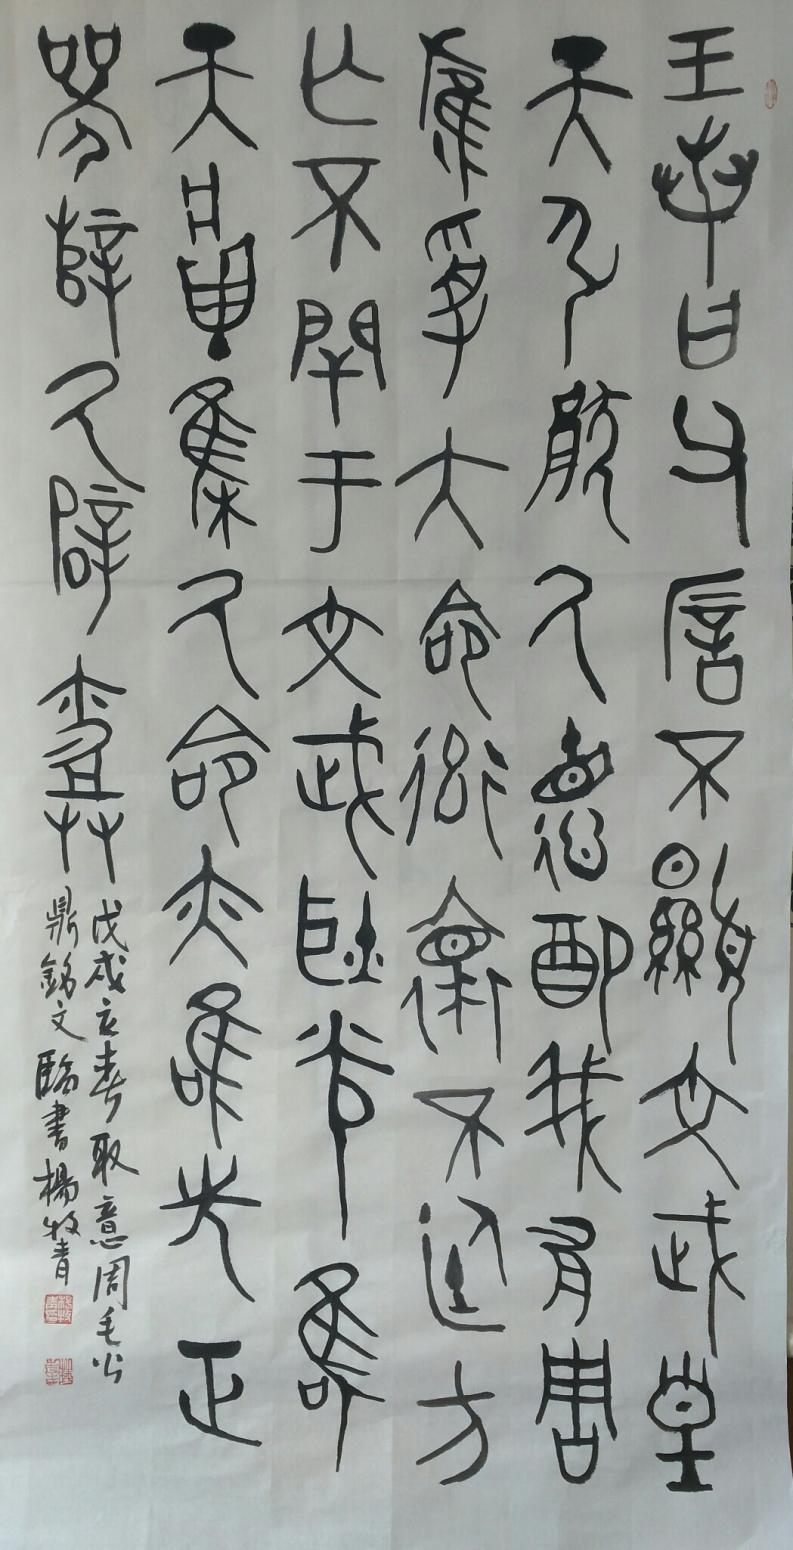 王若曰父㕌不顯文武皇
天引猒厥德配我有周
雁受大命率褱不廷方
亡不閈于文武耿光唯
天將集厥命亦唯先正
襄辥厥辟
戊戌立春取意周毛公
鼎銘文臨書楊牧青